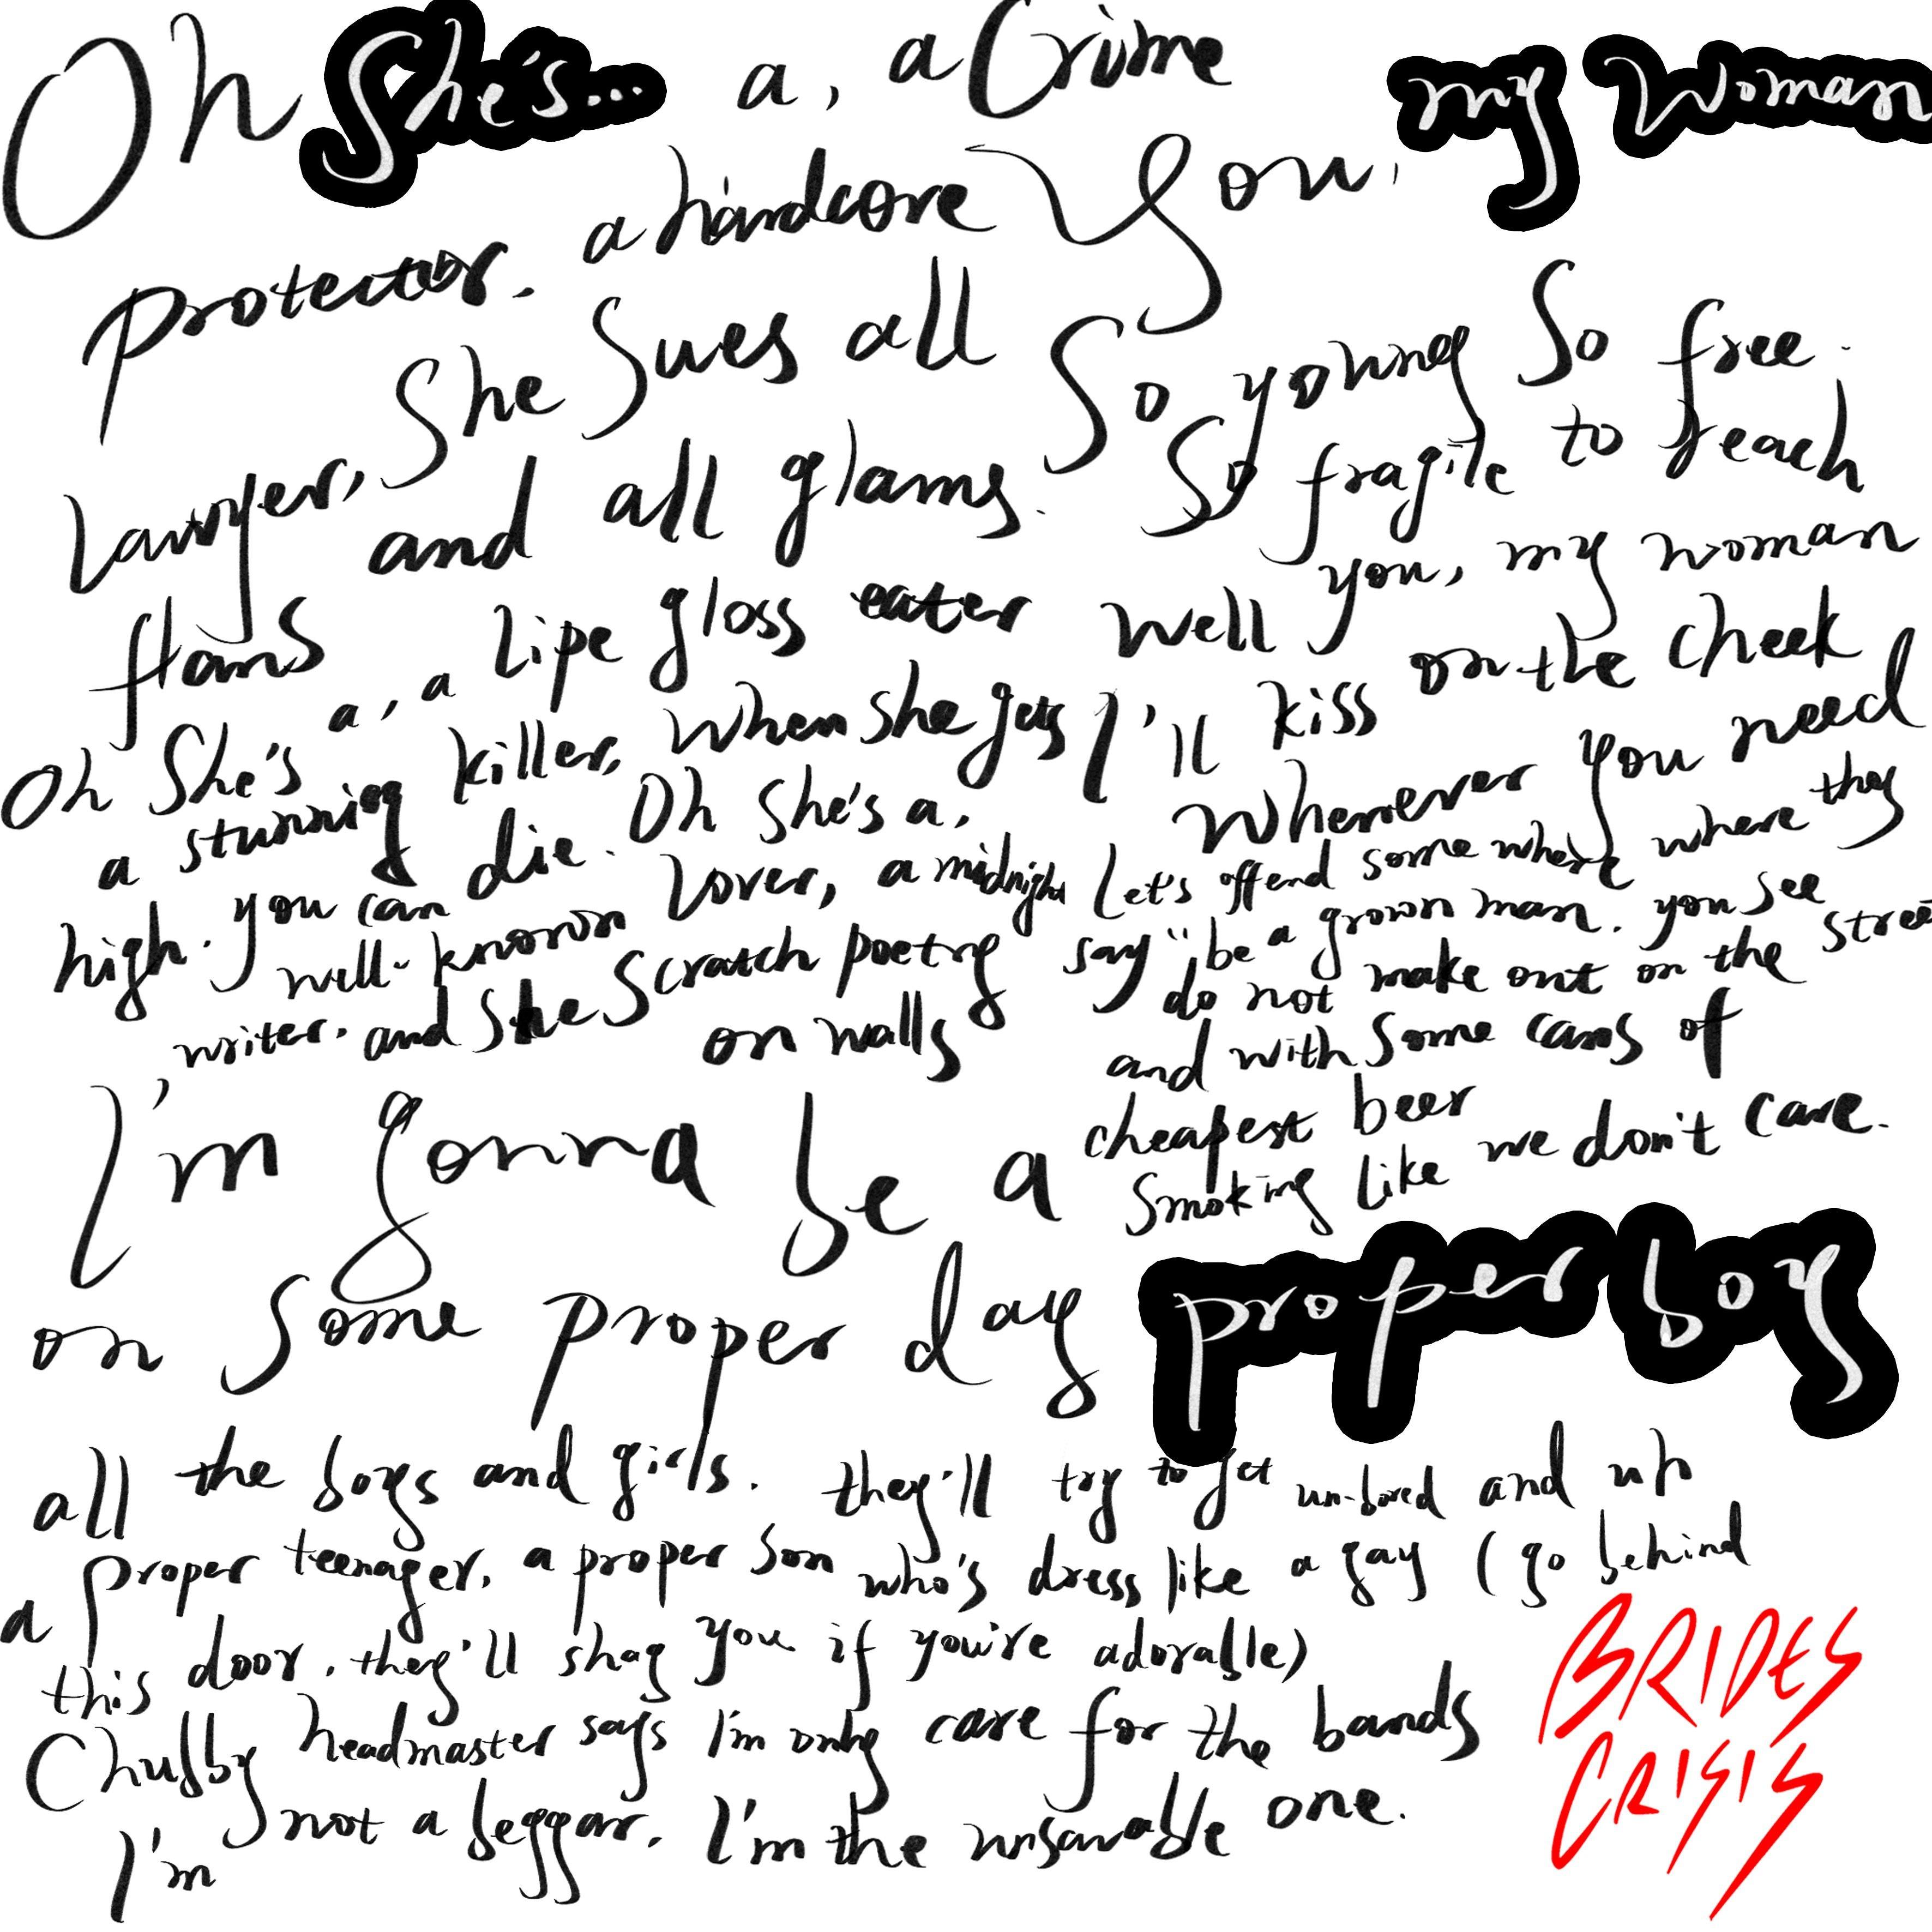 Oh She's... a, a Crime
protector. a hardcore
Lawyer, She Sues all
flams and all glams.
Oh She's a, a Lipe gloss eater
a stunning killer, When she gets
high. you can die. Oh She's a,
well-known Lover, a midnight
writer. and She Scratch poetry
on walls
You, my Woman
So young So free.
So fragile to reach
Well you, my woman
I'll kiss on the cheek
Whenever you need
Let's offend some where where they
say "be a grown man. you see
do not make out on the stree
and with Some cans of
cheapest beer
Smoking like we don't care.
I'm gonna be a
proper boy
on Some proper day
all the boys and girls. they'll try to get un-bored and up
a proper teenager, a proper Son who's dress like a gay (go behind
this door. they'll shag you if you're adorable)
Chubby headmaster says I'm only care for the bands
I'm not a beggar. I'm the unsavable one.
BRIDES
CRISIS